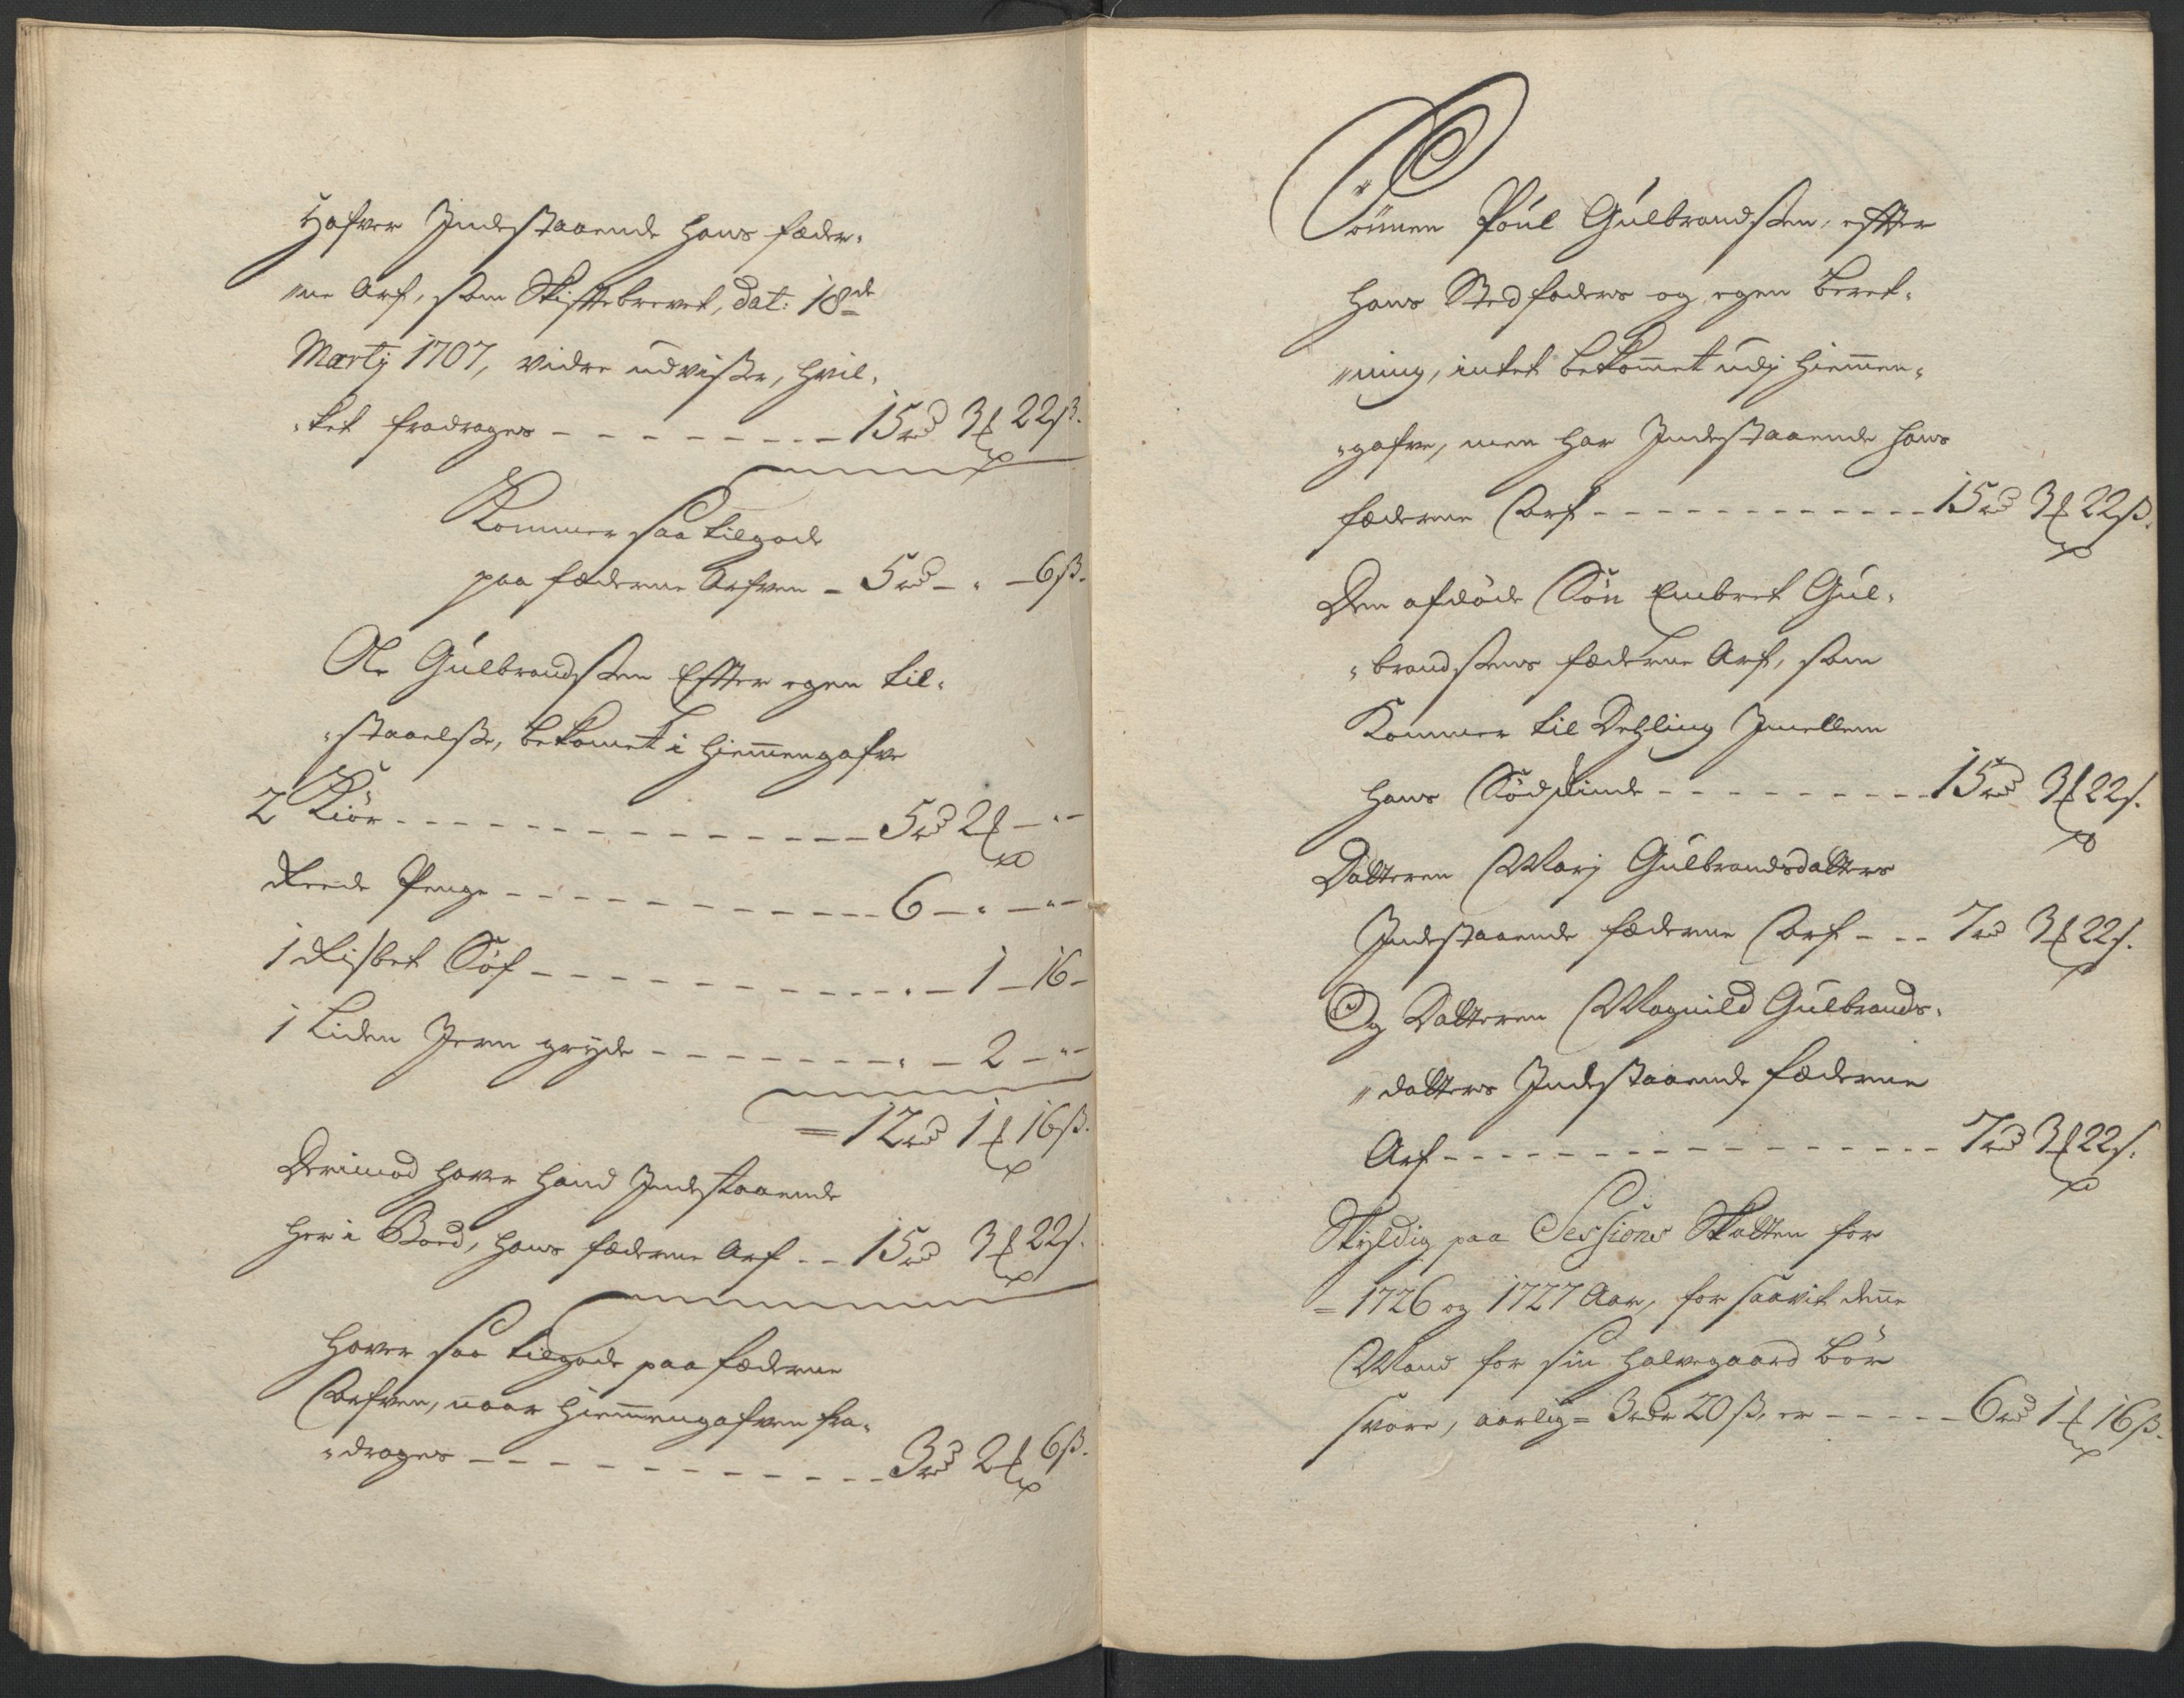 Hafver Indestaaende hans fæder„
„ne Arf, som Skiftebrevet, dat: 18de
Martij 1707, vidre udviser, hvil„
„ket fradrages - - - - - - - - - 15 rd 3 ℔ 22 ß.
Kommer saa tilgode
paa fæderne Arfven - 5 rd - „ - 6 ß.
Ole Gulbrandsen Efter egen til„
„staaelse, bekomet i hiemmengafve
2 Kiör - - - - - - - - - - - - - - 5 rd 2 ℔ - „ -
Reede Penge - - - - - - - - - - - 6 - „ - „ -
1 Risbet Söf - - - - - - - - - - „ - 1 - 16 -
1 Liden Jern gryde - - - - - - - „ - 2 - „ -
= 12 rd 1 ℔ 16 ß.
Derimod haver hand Indestaaende
her i Boed, hans fæderne Arf - - 15 rd 3 ℔ 22 ß.
haver saa tilgode paa fæderne
Arfven, naar hiemmengafven fra„
„drages - - - - - - - - - - - 3 rd 2 ℔ 6 ß.
Sönnen Poul Gulbrandsen, efter
hans Stedfaders og egen beret„
„ning, intet bekommet udj hiemmen„
„gafve, men har Indestaaende hans
fæderne Arf - - - - - - - - - - - 15 rd 3 ℔ 22 ß.
Den afdöde Sön Embret Gul„
„brandsens fæderne Arf, som
Kommer til Dehling Imellem
hans Södskinde - - - - - - - - - 15 rd 3 ℔ 22 ß.
Datteren Marj Gulbrandsdatters
Indestaaende fæderne Arf - - - 7 rd 3 ℔ 22 ß.
Og Datteren Magnild Gulbrands„
„datters Indestaaende fæderne
Arf - - - - - - - - - - - - - - - 7 rd 3 ℔ 22 ß.
Skyldig paa Sessions Skatten for
= 1726 og 1727 Aar, for saavit denne
Mand for sin halvegaard bör
svare, aarlig = 3 rdr 20 ß, er - - - - - 6 rd 1 ℔ 16 ß.